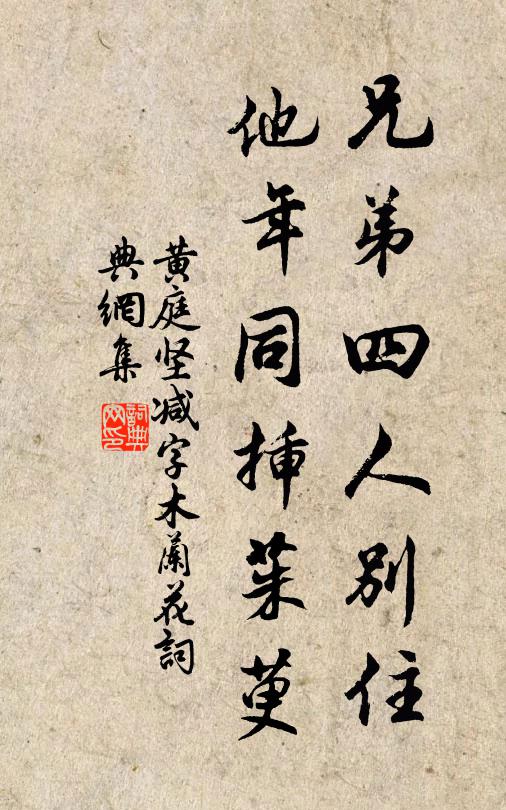 兄弟四人别住
他年同插茱萸
黄庭坚减字木蘭花詞
典網集
詞典網印